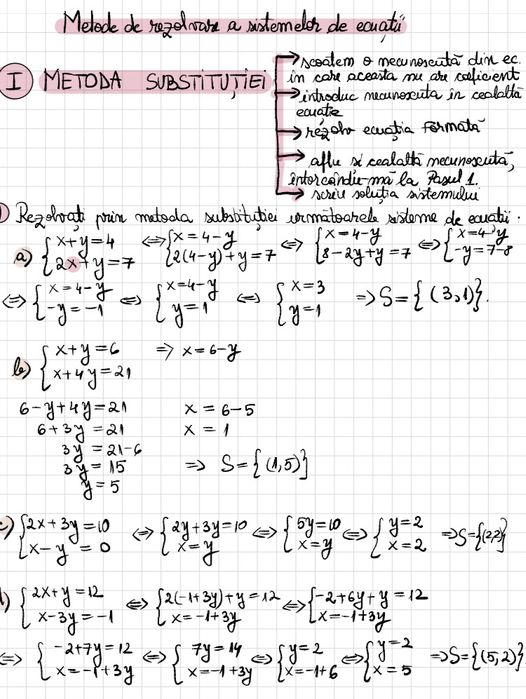 Metode de rezolvare a sistemelor de ecuații
I METODA SUBSTITUȚIEI
→ scoatem o necunoscută din ec. în care aceasta nu are coeficient
→ introduc necunoscuta în cealaltă ecuație
→ rezolv ecuația formată
→ aflu și cealaltă necunoscută, întorcându-mă la Pasul 1.
→ scriu soluția sistemului
Rezolvați prin metoda substituției următoarele sisteme de ecuații:
a) { x+y=4 ⇔ { x=4-y ⇔ { x=4-y ⇔ { x=4-y
{ 2x+y=7 { 2(4-y)+y=7 { 8-2y+y=7 { -y=7-8
⇔ { x=4-y ⇔ { x=4-y ⇔ { x=3 ⇒ S={(3,1)}.
{ -y=-1 { y=1 { y=1
b) { x+y=6 ⇒ x=6-y
{ x+4y=21
6-y+4y=21 x=6-5
6+3y=21 x=1
3y=21-6
3y=15 ⇒ S={(1,5)}
y=5
c) { 2x+3y=10 ⇔ { 2y+3y=10 ⇔ { 5y=10 ⇔ { y=2 ⇒ S={(2,2)}
{ x-y=0 { x=y { x=y { x=2
d) { 2x+y=12 ⇔ { 2(-1+3y)+y=12 ⇔ { -2+6y+y=12
{ x-3y=-1 { x=-1+3y { x=-1+3y
⇔ { -2+7y=12 ⇔ { 7y=14 ⇔ { y=2 ⇔ { y=2 ⇒ S={(5,2)}
{ x=-1+3y { x=-1+3y { x=-1+6 { x=5